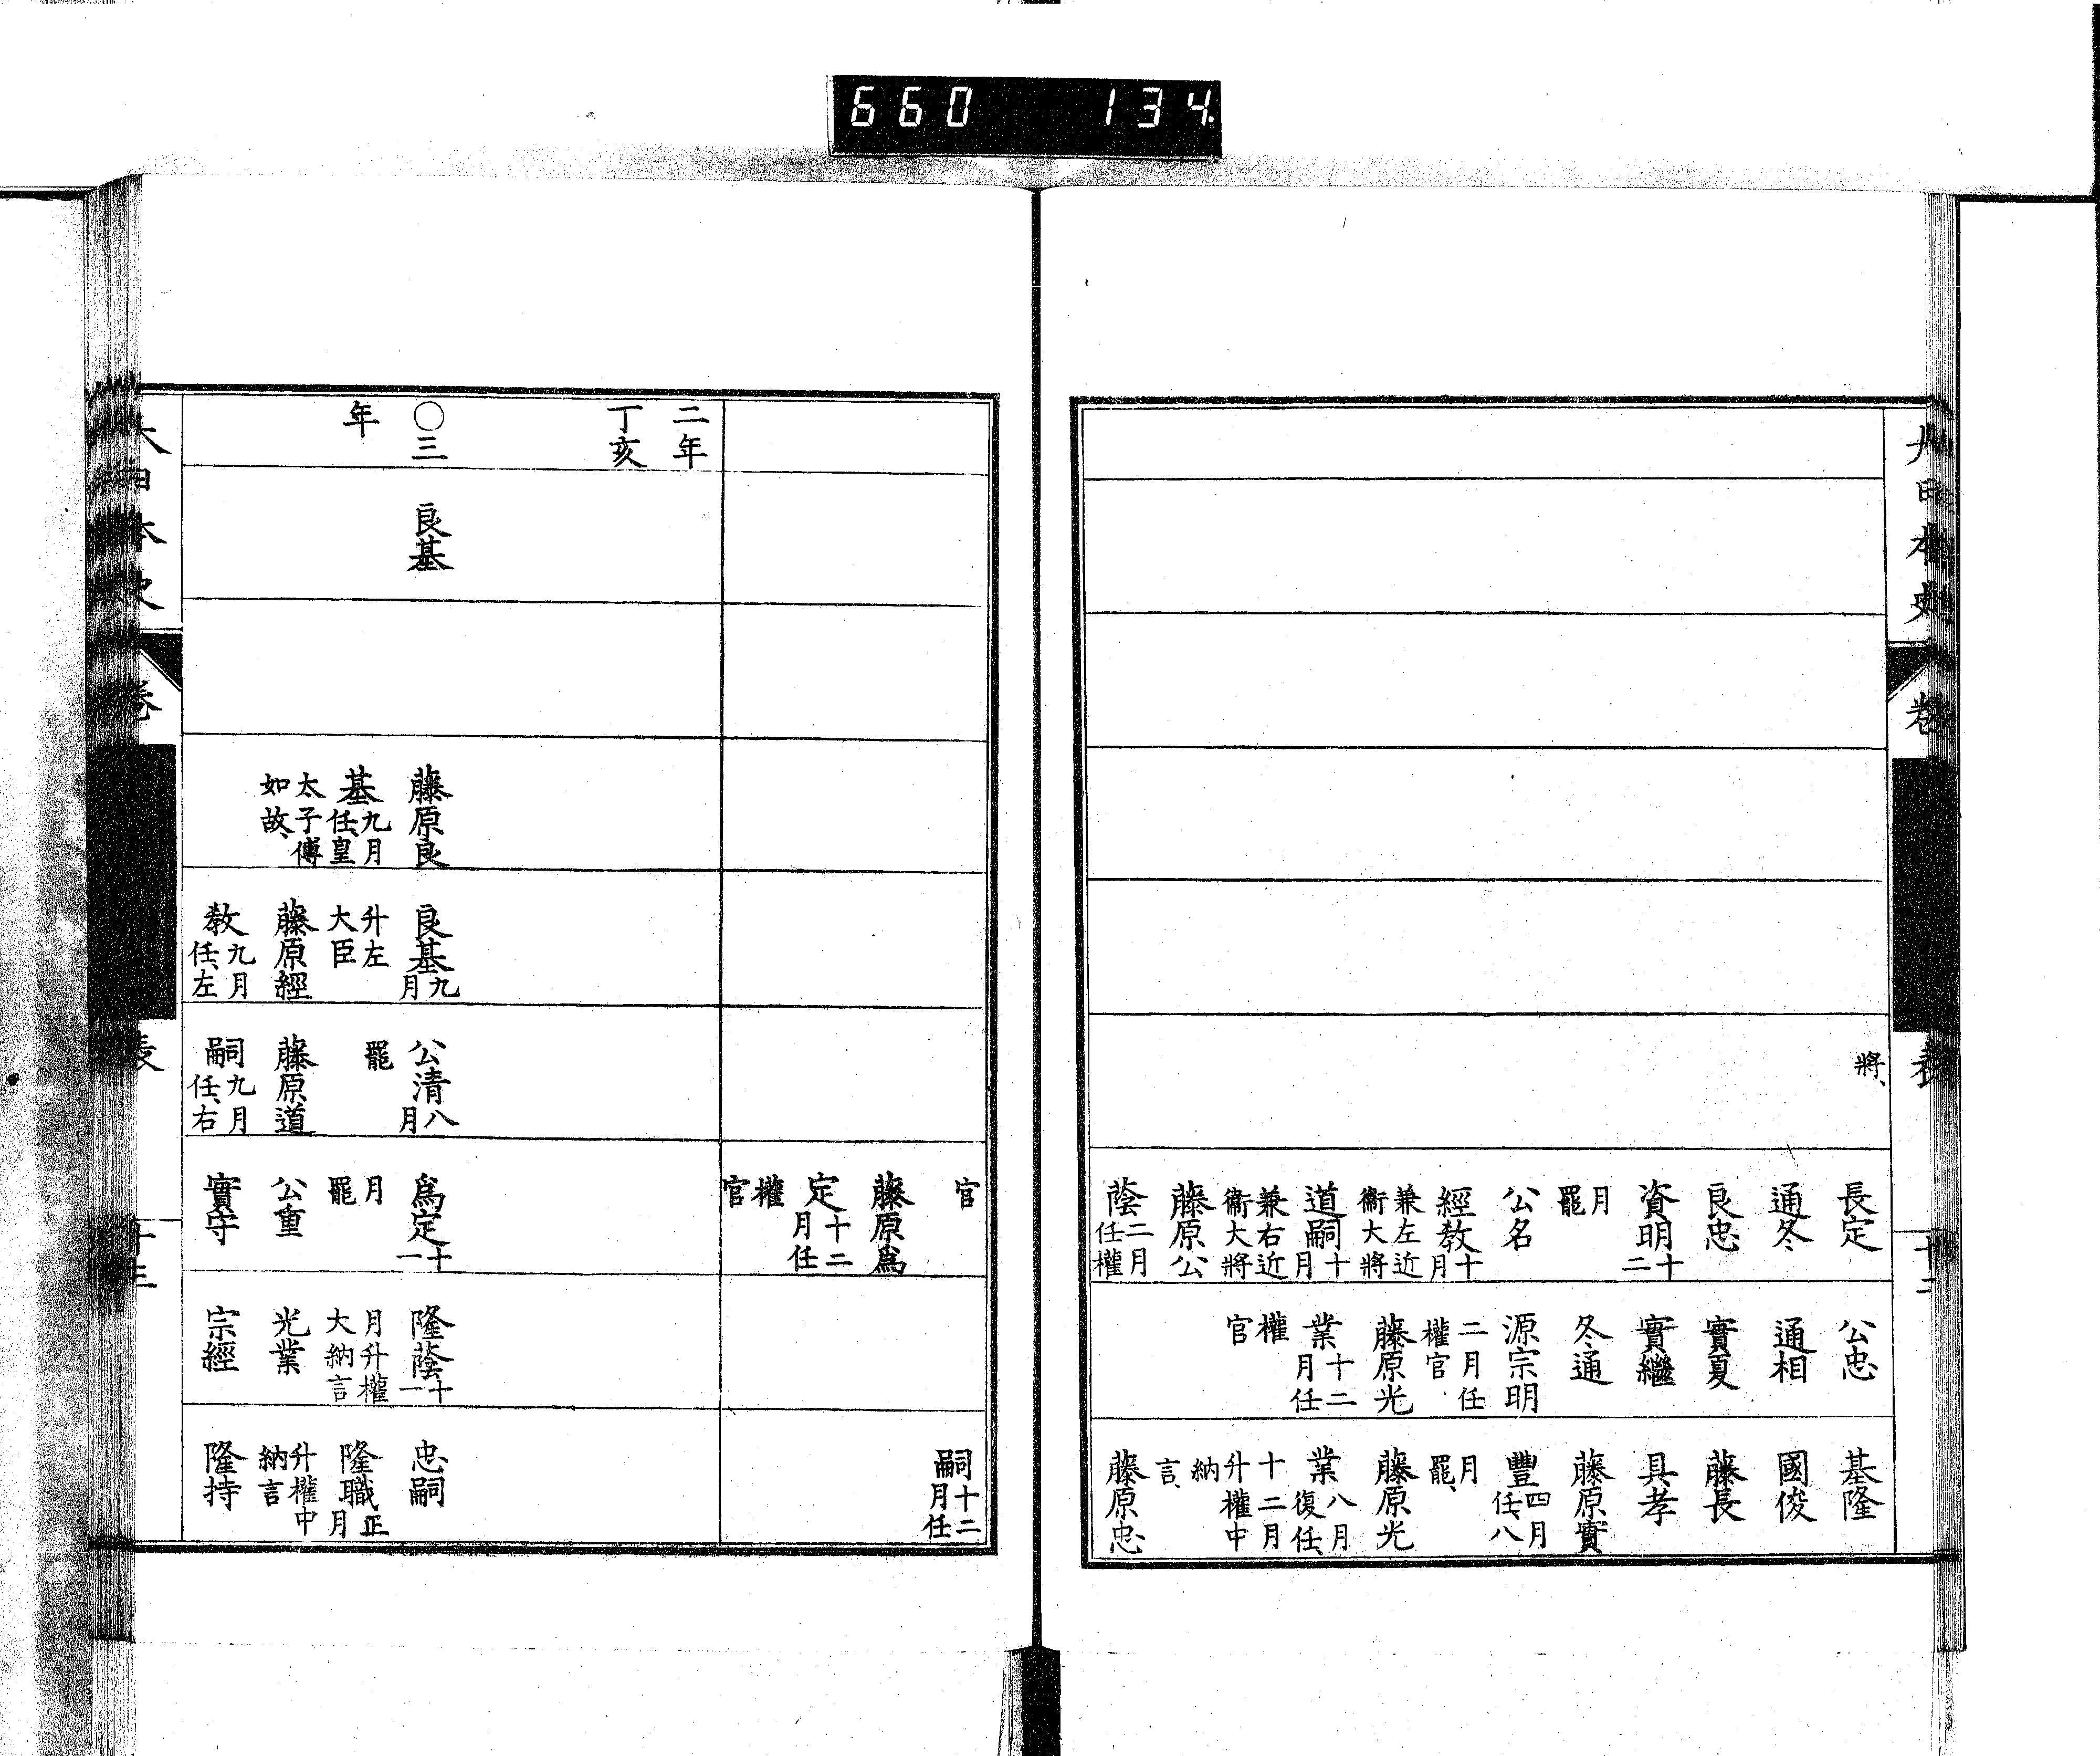 660 134.
大日本史 卷 表 十二
將、
長定
通冬
良忠
資明十二
月罷
公名
經教十月
兼左近衞大將
道嗣十月
兼右近衞大將
藤原公
蔭二月任權
官
藤原爲
定十二月任
權官
公忠
通相
實夏
實繼
冬通
源宗明
二月任權官
藤原光
業十二月任
權官
基隆
國俊
藤長
具孝
藤原實
豐四月任、八
月罷、
藤原光
業八月復任、
十二月升權中
納言、
藤原忠
嗣十二月任
二年
丁亥
〇三
年
良基
藤原良
基九月任、皇
太子傅如故、
良基九月
升左大臣
藤原經
教九月任、左
公清八月
罷
藤原道
嗣九月任、右
爲定十一
月罷
公重
實守
隆蔭十一
月升權大納言
光業
宗經
忠嗣
隆職正月
升權中納言
隆持
大日本史 卷 表 十三